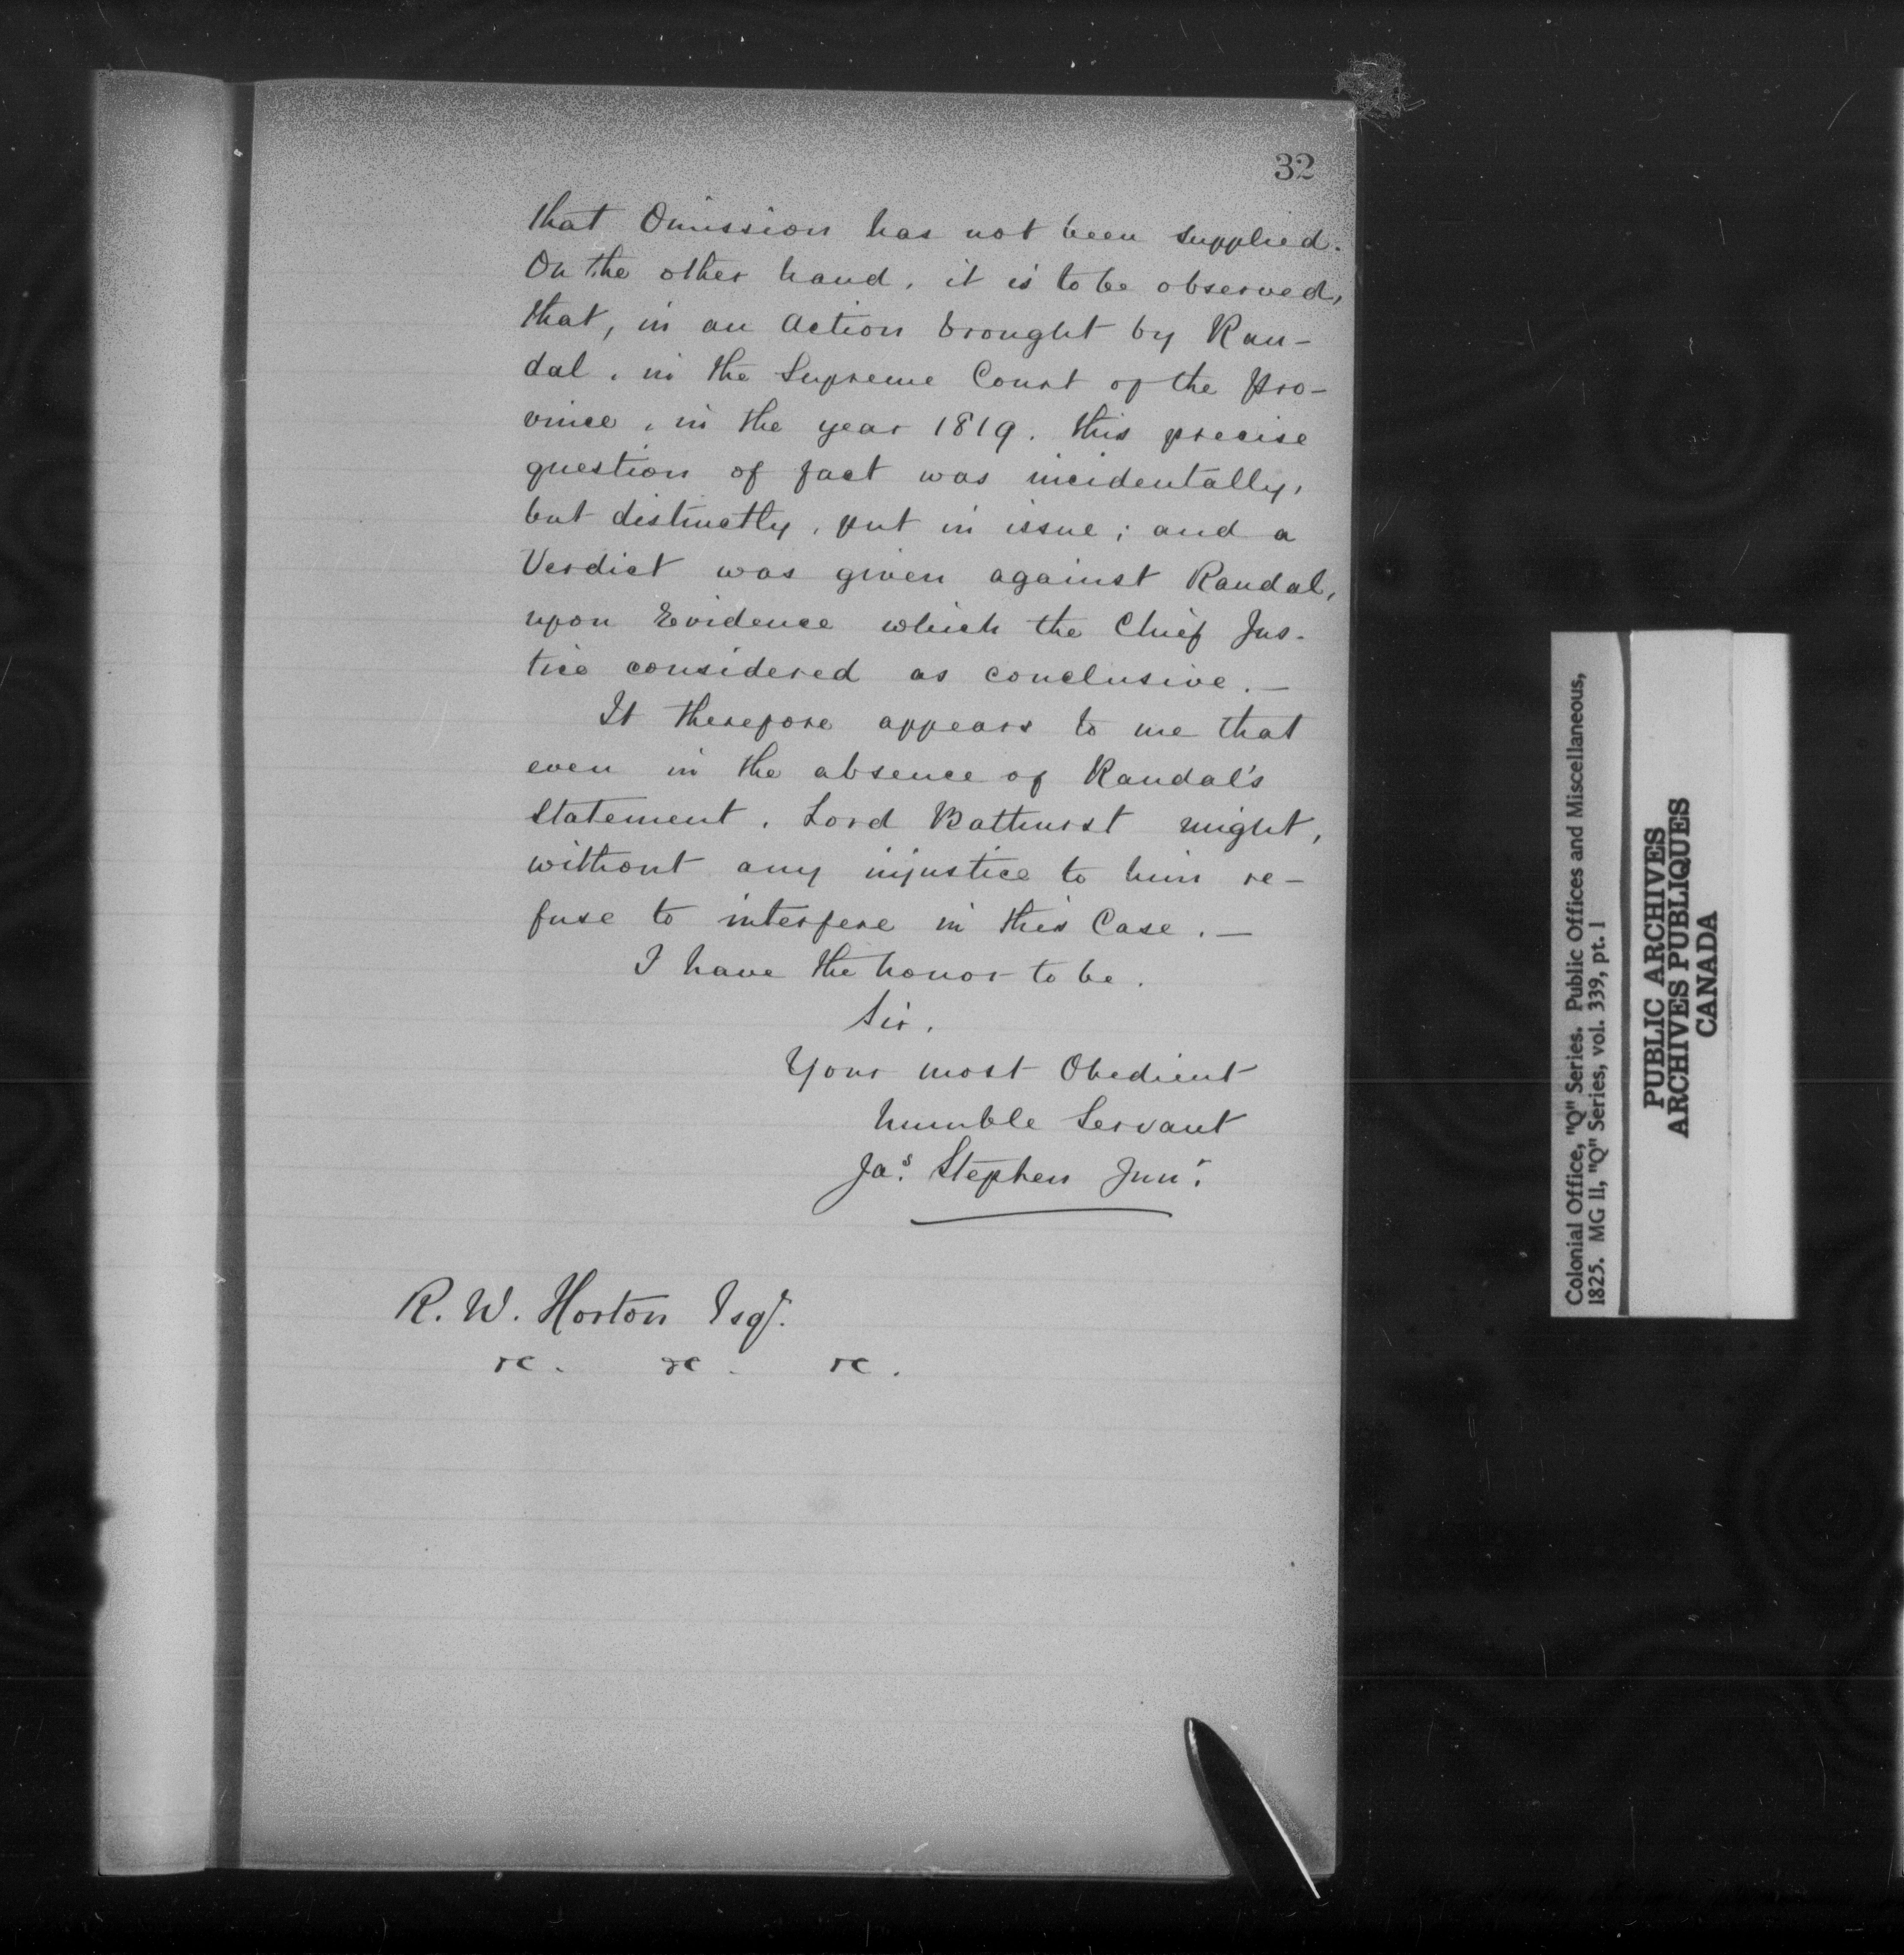 32
that Omission has not been supplied.
On the other hand, it is to be observed,
that, in an Action brought by Ran-
dal, in the Supreme Court of the Pro-
vince, in the year 1819. this precise
question of fact was incidentally,
but distinctly, put in issue; and a
Verdict was given against Randal,
upon Evidence which the Chief Jus-
tice considered as conclusive. —
It therefore appears to me that
even in the absence of Randal's
Statement, Lord Bathurst might,
without any injustice to him re-
fuse to interfere in this Case. —
I have the honor to be.
Sir.
Your most Obedient
humble Servant
Jas. Stephen Junr.
R. W. Horton Esqr.
&c. &c. &c.
Colonial Office, "Q" Series. Public Offices and Miscellaneous,
1825. MG 11, "Q" Series, vol. 339, pt. 1
PUBLIC ARCHIVES
ARCHIVES PUBLIQUES
CANADA